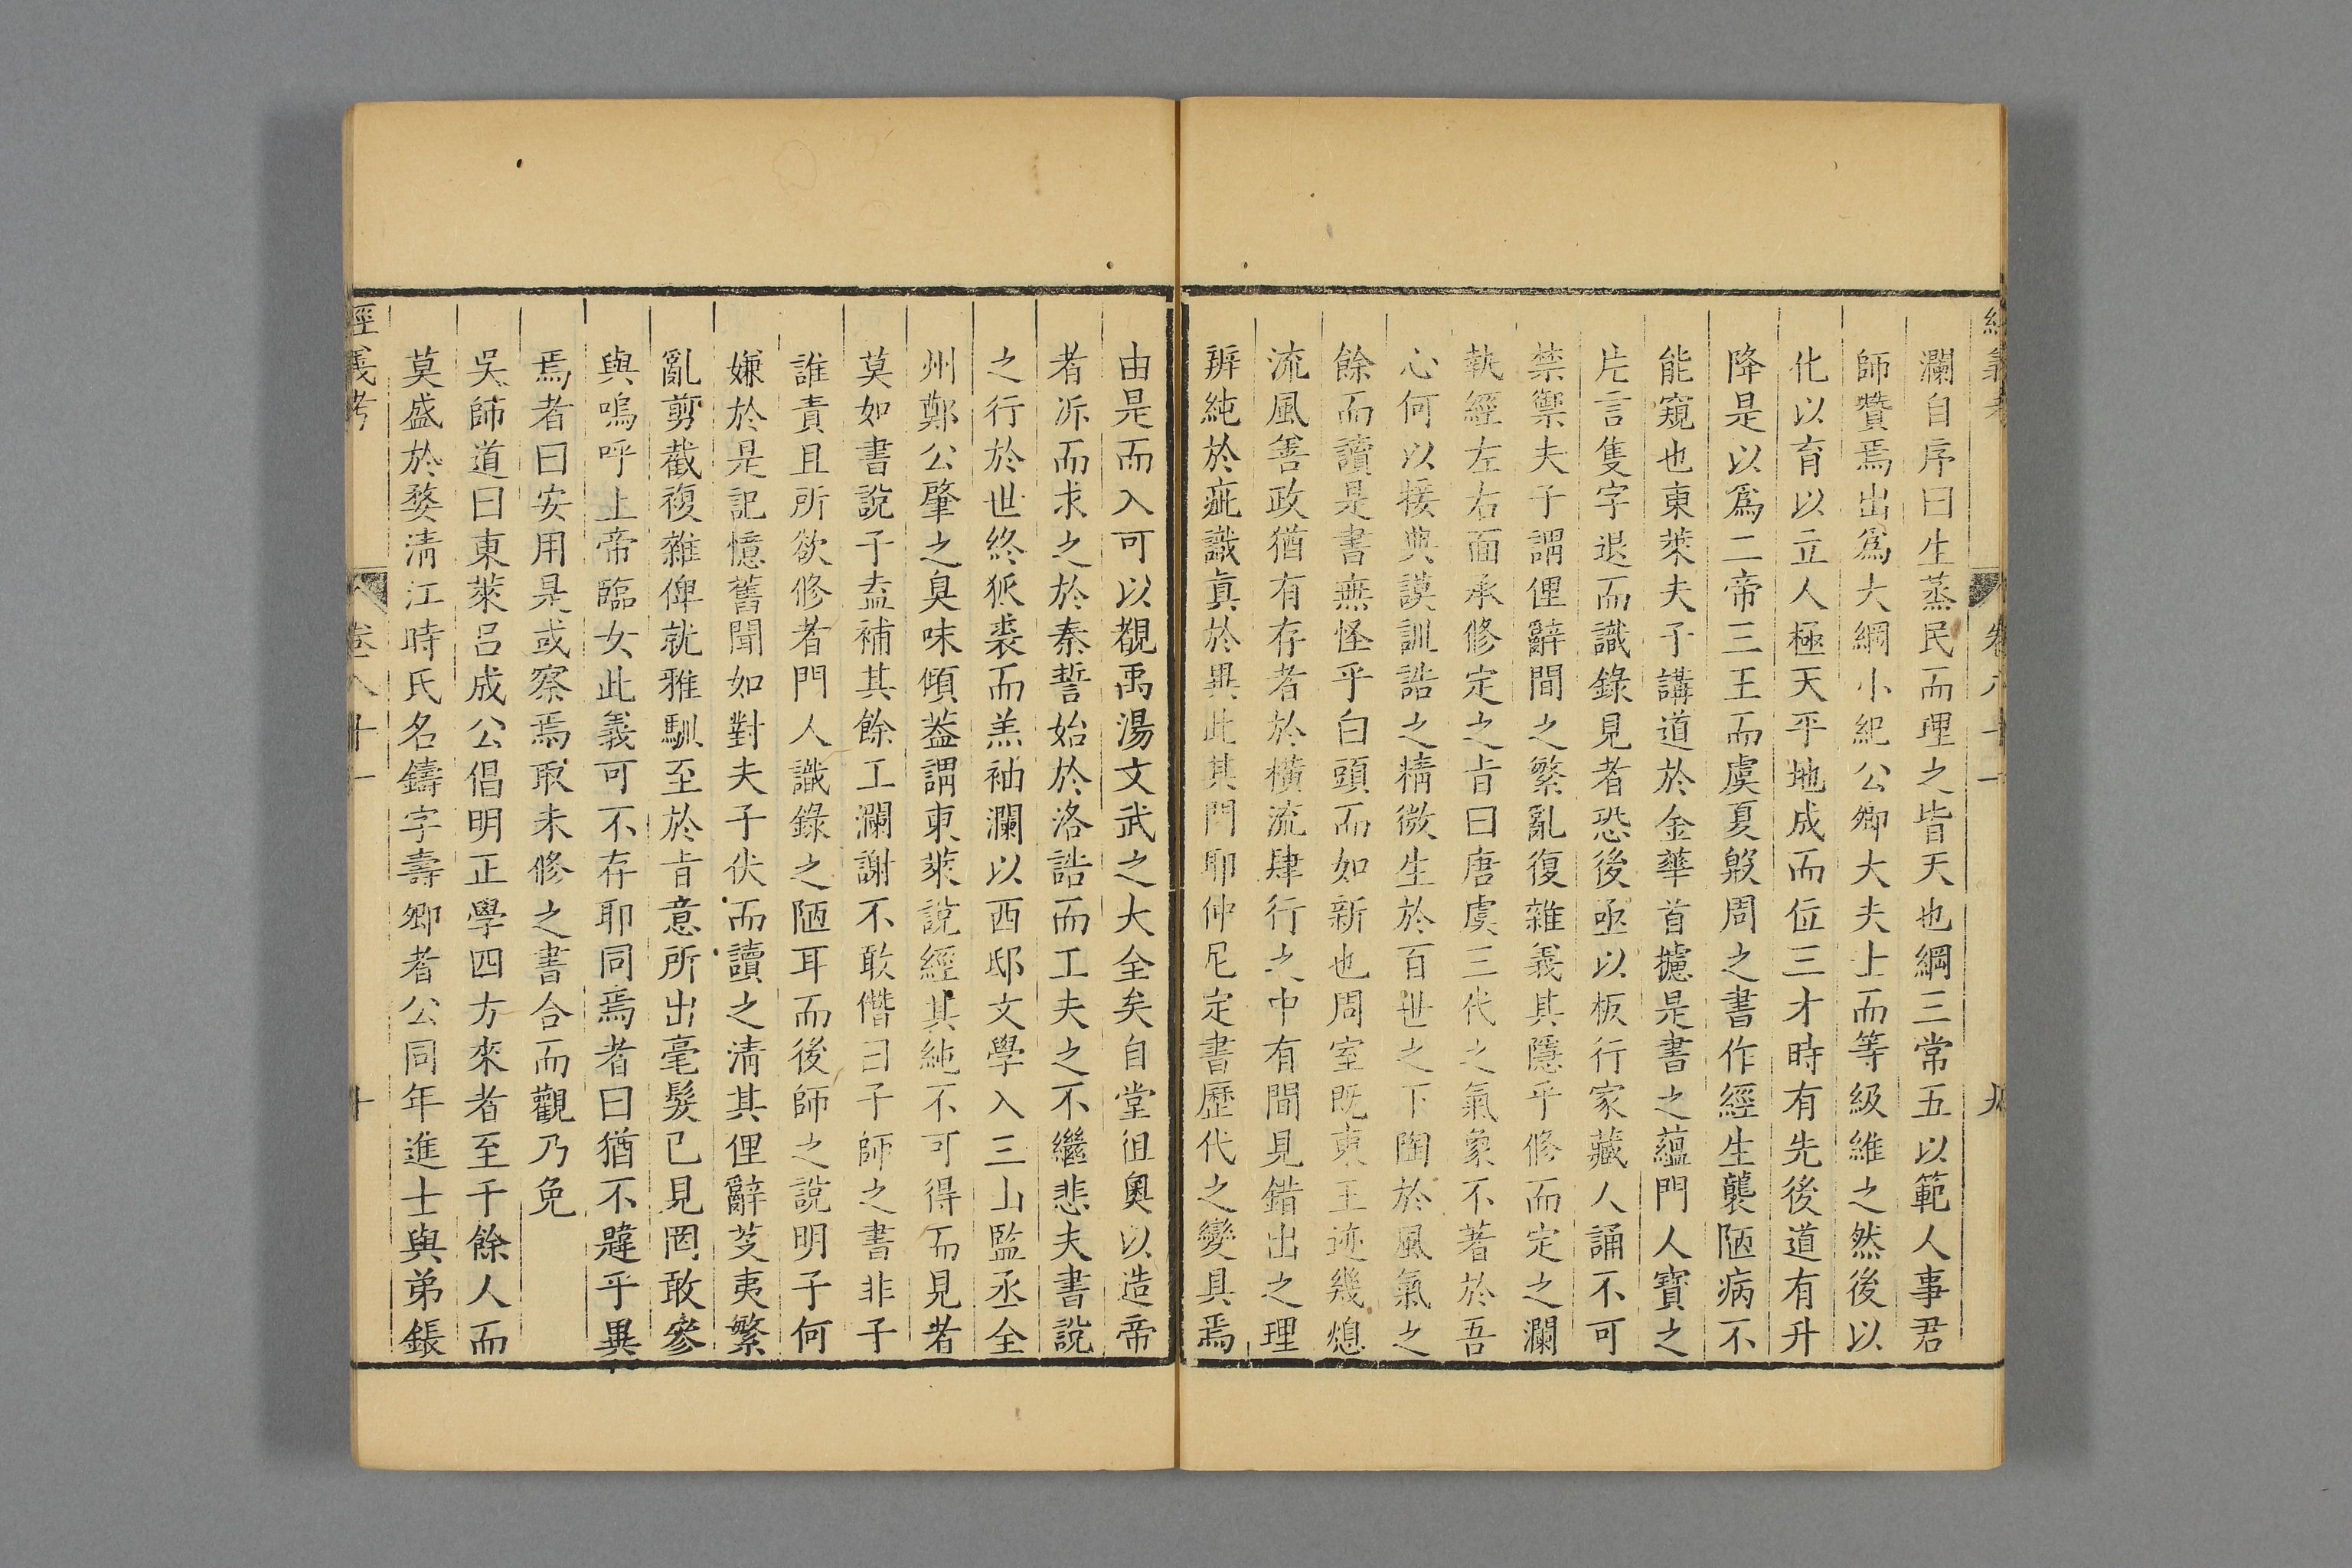 經義考 卷八十一 九
瀾自序曰生蒸民而理之皆天也綱三常五以範人事君
師贊焉出爲大綱小紀公卿大夫士而等級維之然後以
化以育以立人極天平地成而位三才時有先後道有升
降是以爲二帝三王而虞夏殷周之書作經生襲陋病不
能窺也東萊夫子講道於金華首攄是書之蘊門人寶之
片言隻字退而識錄見者恐後亟以板行家藏人誦不可
禁禦夫子謂俚辭間之繁亂復雜義其隱乎修而定之瀾
執經左右面承修定之旨曰唐虞三代之氣象不著於吾
心何以接典謨訓誥之精微生於百世之下陶於風氣之
餘而讀是書無怪乎白頭而如新也周室旣東王迹幾熄
流風善政猶有存者於橫流肆行之中有聞見錯出之理
辨純於疵識眞於異此其門耶仲尼定書歷代之變具焉
由是而入可以覩禹湯文武之大全矣自堂徂奧以造帝
者泝而求之於秦誓始於洛誥而工夫之不繼悲夫書說
之行於世終狐裘而羔袖瀾以西邸文學入三山監丞全
州鄭公肇之臭味傾葢謂東萊說經其純不可得而見者
莫如書說子盍補其餘工瀾謝不敢僭曰子師之書非子
誰責且所欲修者門人識錄之陋耳而後師之說明子何
嫌於是記憶舊聞如對夫子伏而讀之淸其俚辭芟夷繁
亂剪截複雜俾就雅馴至於旨意所出毫髮已見罔敢參
與嗚呼上帝臨女此義可不存耶同焉者曰猶不韙乎異
焉者曰安用是或察焉取未修之書合而觀乃免
吳師道曰東萊呂成公倡明正學四方來者至千餘人而
莫盛於婺淸江時氏名鑄字壽卿者公同年進士與弟錶
經義考 卷八十一 十